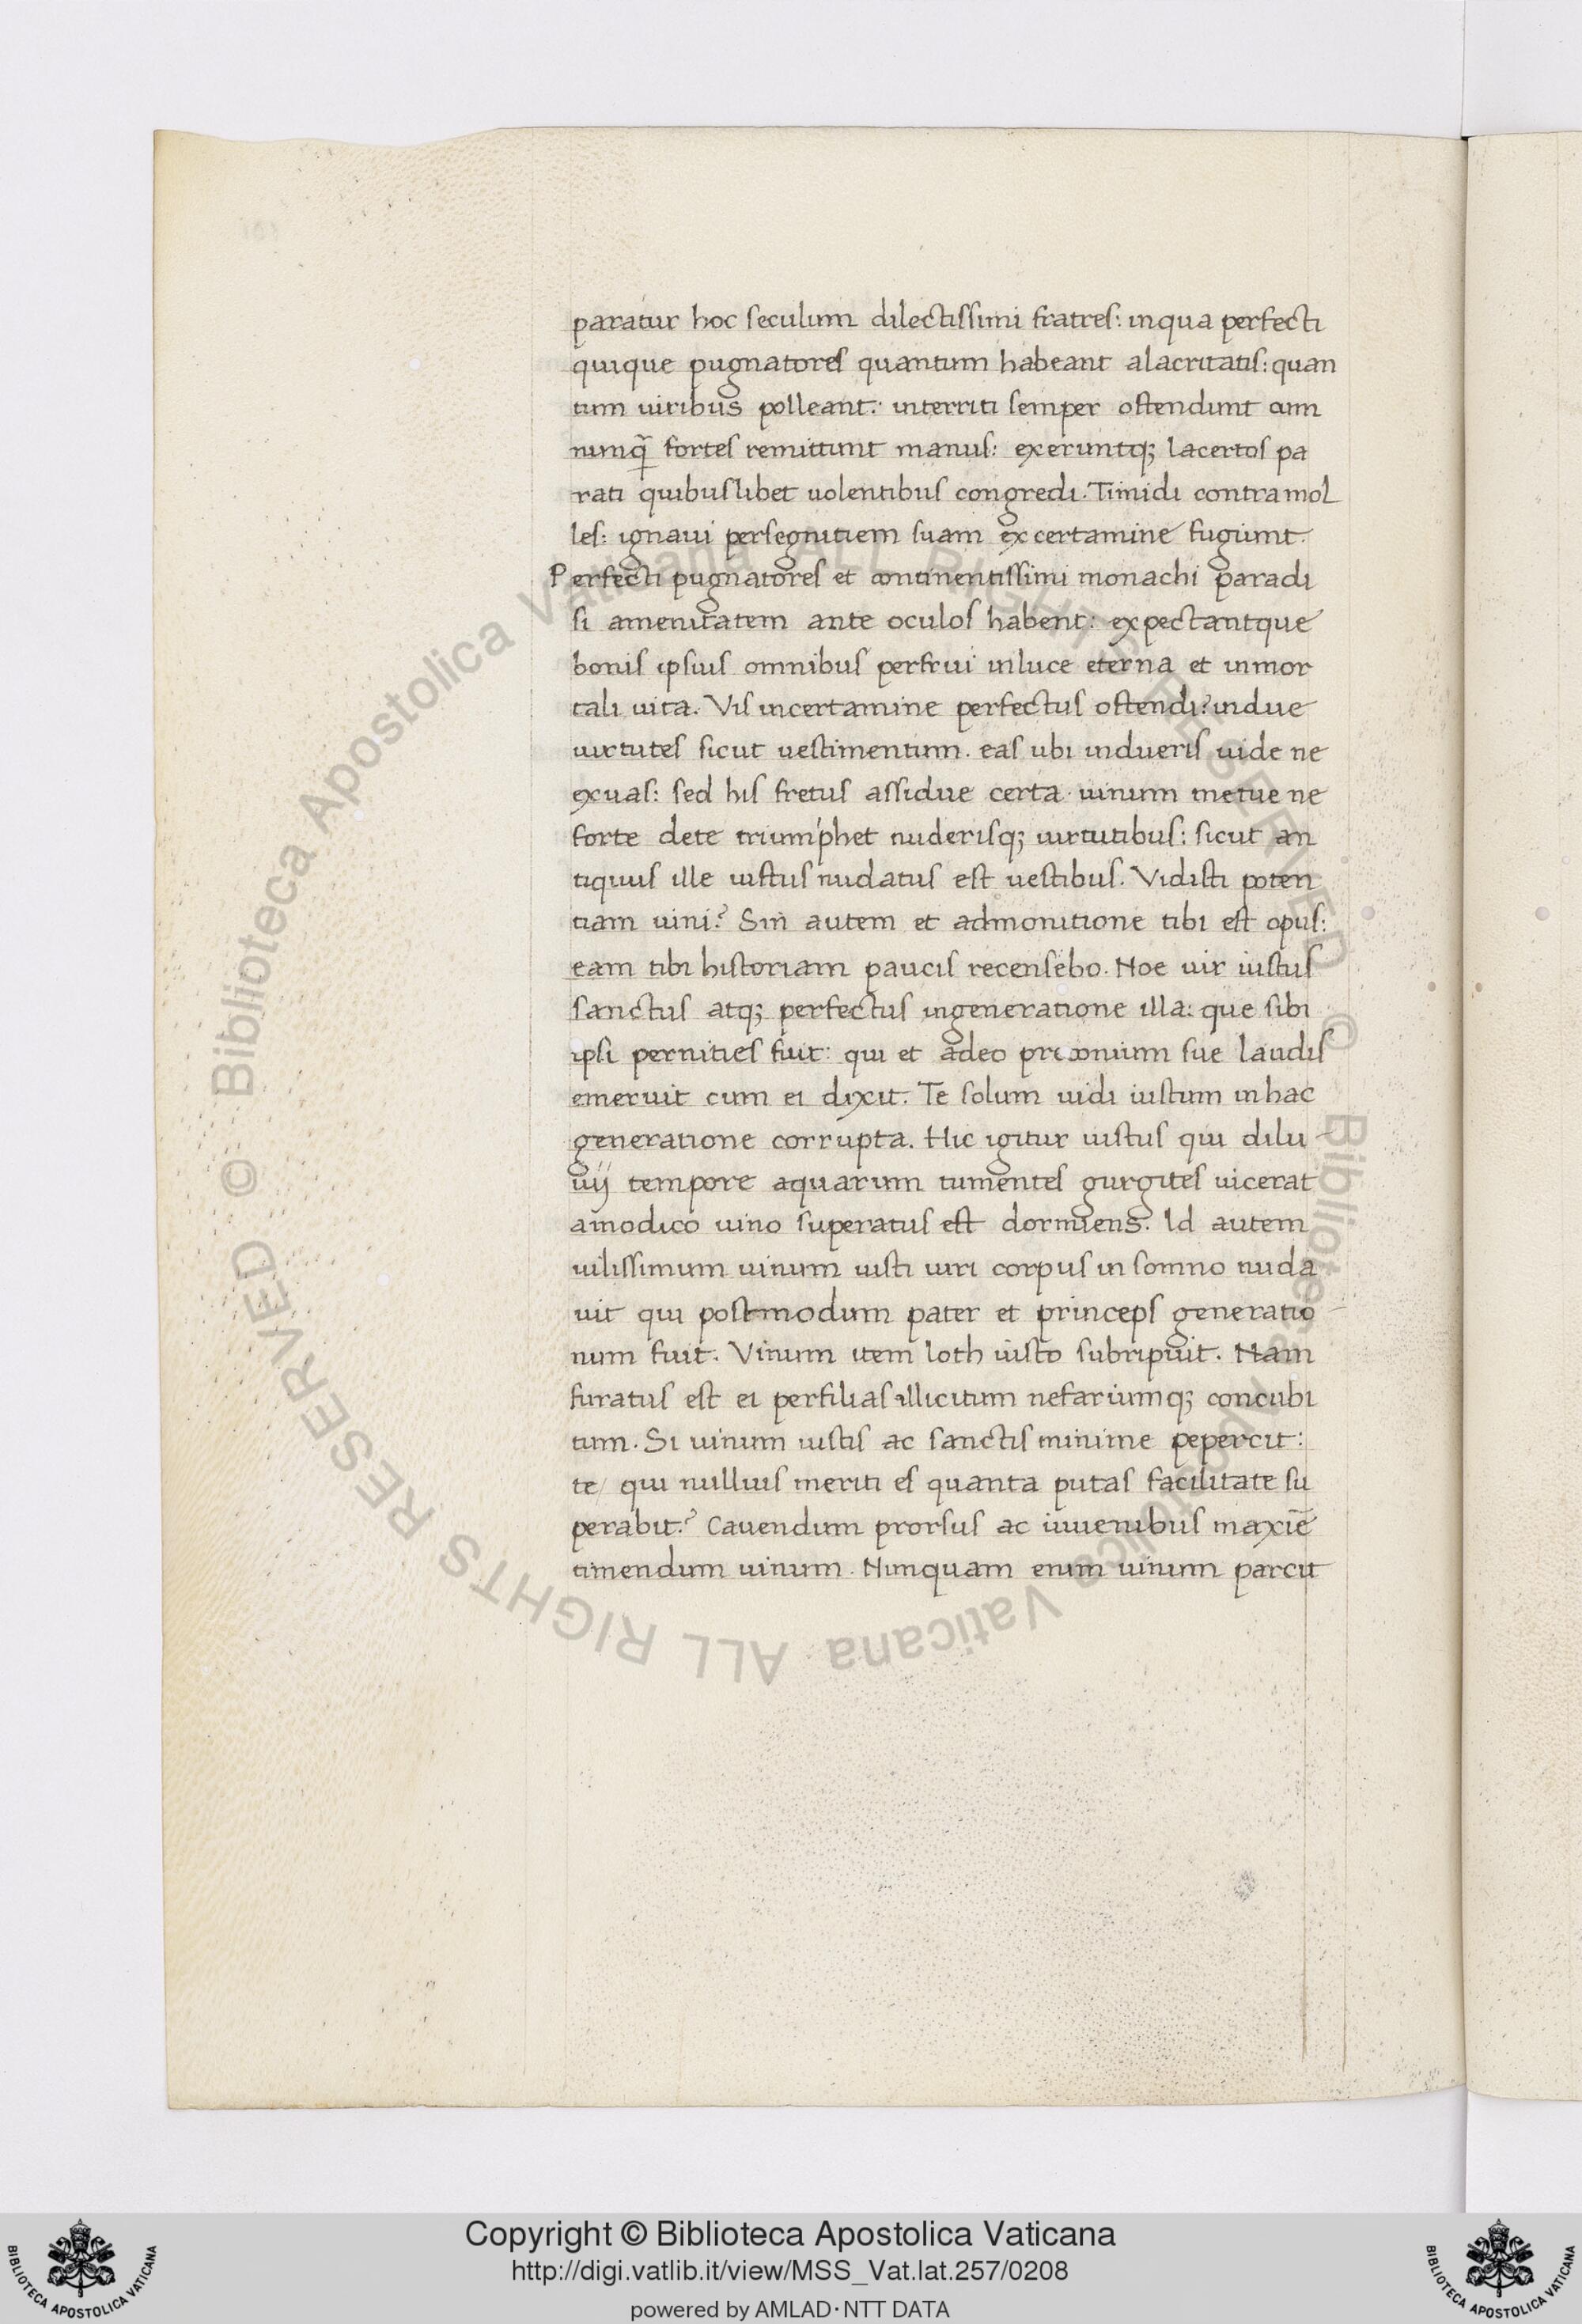 paratur hoc seculum dilectissimi fratres: inqua perfecti
quique pugnatores quantum habeant alacritatis: quan
tum uiribus polleant: interriti semper ostendunt cum
nunq̃ fortes remittunt manus: exeruntq; lacertos pa
rati quibuslibet uolentibus congredi. Timidi contra mol
les: ignaui persegnitiem suam ex certamine fugiunt.
Perfecti pugnatores et continentissimi monachi paradi
si amenitatem ante oculos habent: expectantque
bonis ipsius omnibus perfrui inluce eterna et inmor
tali uita. Vis incertamine perfectus ostendi? indue
uirtutes sicut uestimentum. eas ubi indueris uide ne
exuas: sed his fretus assidue certa. uinum metue ne
forte dete triumphet nuderisq; uirtutibus: sicut an
tiquus ille iustus nudatus est uestibus. Vidisti poten
tiam uini? Sin autem et admonitione tibi est opus:
eam tibi historiam paucis recensebo. Noe uir iustus
sanctus atq; perfectus ingeneratione illa: que sibi
ipsi pernities fuit: qui et adeo preconium sue laudis
emeruit cum ei dixit. Te solum uidi iustum inhac
generatione corrupta. Hic igitur iustus qui dilu
uij tempore aquarum tumentes gurgites uicerat
amodico uino superatus est dormiens. Id autem
uilissimum uinum iusti uiri corpus in somno nuda
uit qui postmodum pater et princeps generatio
num fuit. Vinum item loth iusto subripuit. Nam
furatus est ei perfilias illicitum nefariumq; concubi
tum. Si uinum iustis ac sanctis minime pepercit:
te/ qui nullius meriti es quanta putas facilitate su
perabit? Cauendum prorsus ac iuuenibus maxīe
timendum uinum. Nunquam enim uinum parcit
Biblioteca Apostolica Vaticana ALL RIGHTS RESERVED ©
Biblioteca Apostolica Vaticana ALL RIGHTS RESERVED ©
Copyright © Biblioteca Apostolica Vaticana
http://digi.vatlib.it/view/MSS_Vat.lat.257/0208
powered by AMLAD·NTT DATA
BIBLIOTECA APOSTOLICA VATICANA
BIBLIOTECA APOSTOLICA VATICANA